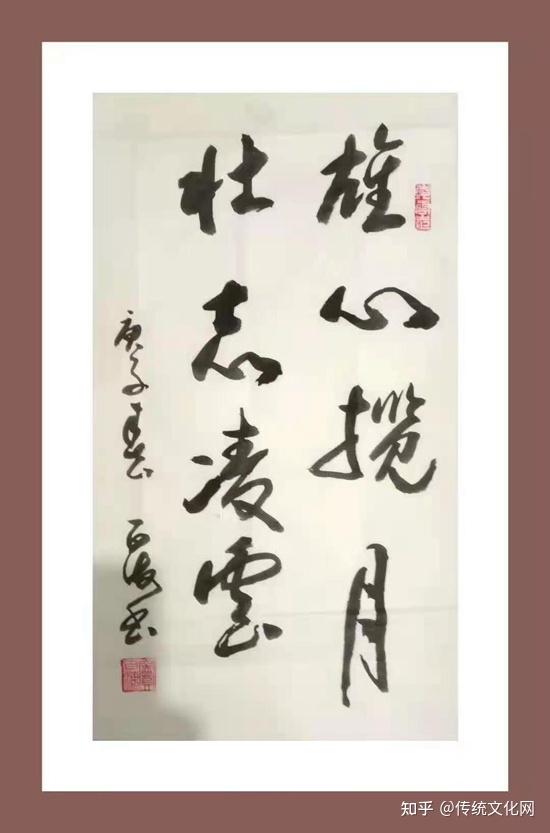 雄心揽月
壮志凌雲
庚子春 百海书
知乎 @传统文化网